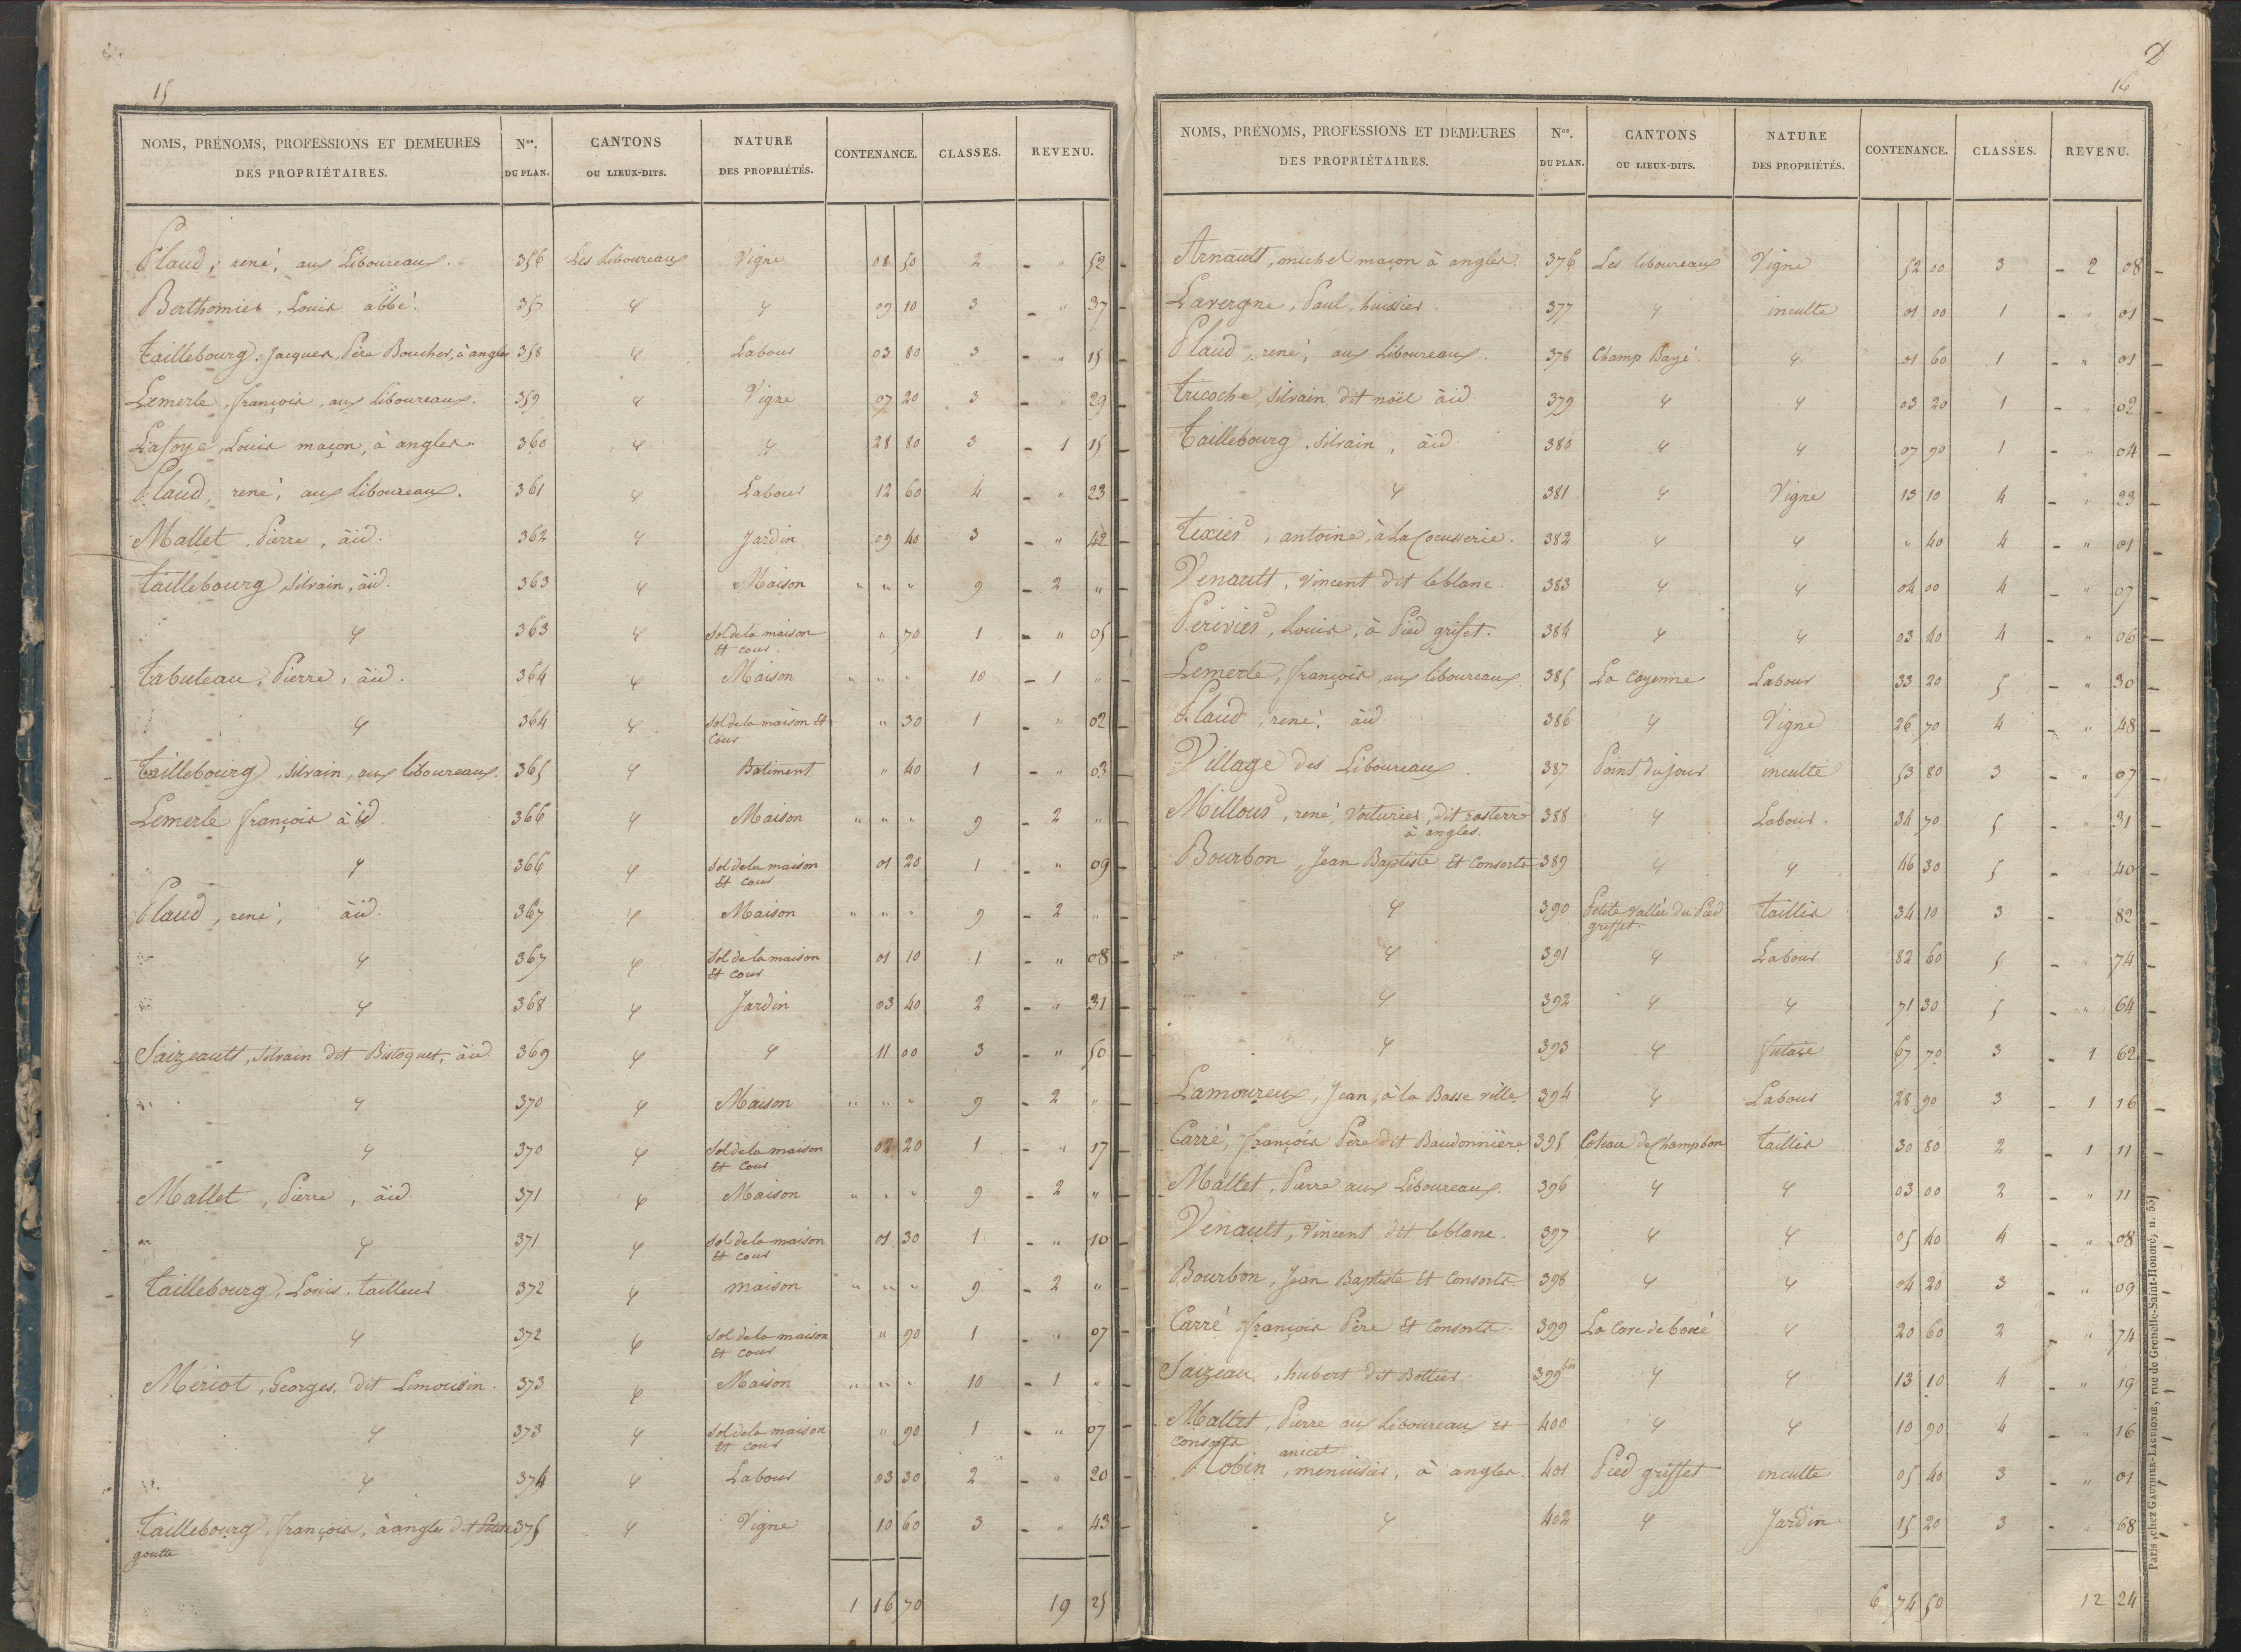 15
NOMS, PRÉNOMS, PROFESSIONS ET DEMEURES DES PROPRIÉTAIRES. Nos. DU PLAN. CANTONS OU LIEUX-DITS. NATURE DES PROPRIÉTÉS. CONTENANCE. CLASSES. REVENU.
Plaud, rené, aux Liboureaux. 356 Les Liboureaux Vigne 08 50 2 - " 52 -
Berthomier, Louis abbé. 357 " " 09 10 3 - " 37 -
Taillebourg, Jacques, Père Boucher, à angles 358 " Labour 03 80 3 - " 15 -
Lemerle, françois, aux liboureaux. 359 " Vigne 07 20 3 - " 29 -
Lafoye, Louis maçon, à angles. 360 " " 28 80 3 - 1 15 -
Plaud, rené, aux Liboureaux. 361 " Labour 12 60 4 - " 23 -
Mallet, Pierre, äid. 362 " Jardin 09 40 3 - " 42 -
Taillebourg, Silvain, äid. 363 " Maison " " " 9 - 2 " -
" 363 " Sol de la maison Et cour. " 70 1 - " 05 -
Tabuteau, Pierre, äid. 364 " Maison " " " 10 - 1 " -
" 364 " Sol de la maison Et Cour " 30 1 - " 02 -
Taillebourg, Silvain, aux liboureaux. 365 " Batiment " 40 1 - " 03 -
Lemerle françois äid. 366 " Maison " " " 9 - 2 " -
" 366 " Sol de la maison Et Cour 01 20 1 - " 09 -
Plaud, rené, äid. 367 " Maison " " " 9 - 2 " -
" 367 " Sol de la maison Et Cour 01 10 1 - " 08 -
" 368 " Jardin 03 40 2 - " 31 -
Saizeault, Silvain dit Bistoquet, äid. 369 " " 11 00 3 - " 50 -
" 370 " Maison " " " 9 - 2 " -
" 370 " Sol de la maison Et Cour 02 20 1 - " 17 -
Mallet, Pierre, äid 371 " Maison " " " 9 - 2 " -
" 371 " Sol de la maison Et Cour 01 30 1 - " 10 -
Taillebourg, Louis, tailleur 372 " maison " " " 9 - 2 " -
" 372 " Sol de la maison Et Cour " 90 1 - " 07 -
Meriot, Georges, dit Limousin. 373 " Maison " " " 10 - 1 " -
" 373 " Sol de la maison Et Cour " 90 1 - " 07 -
" 374 " Labour 03 30 2 - " 20 -
Taillebourg, françois, à angles dit Petite goutte 375 " Vigne 10 60 3 - " 43 -
1 16 70 19 25
16
NOMS, PRÉNOMS, PROFESSIONS ET DEMEURES DES PROPRIÉTAIRES. Nos. DU PLAN. CANTONS OU LIEUX-DITS. NATURE DES PROPRIÉTÉS. CONTENANCE. CLASSES. REVENU.
Arnault, michel maçon à angles. 376 Les liboureaux Vigne 52 00 3 - 2 08 -
Lavergne, Paul, huissier. 377 " inculte 01 00 1 - " 01 -
Plaud, rené, aux Liboureaux. 378 Champ Bayé " 01 60 1 - " 01 -
Tricoche, Silvain dit noël äid 379 " " 03 20 1 - " 02 -
Taillebourg, Silvain, äid. 380 " " 07 90 1 - " 04 -
" 381 " Vigne 13 10 4 - " 23 -
Texier, antoine, à La Cocusserie. 382 " " " 40 4 - " 01 -
Venault, Vincent dit leblanc. 383 " " 04 00 4 - " 07 -
Périvier, Louis, à Pied griffet. 384 " " 03 40 4 - " 06 -
Lemerle, françois, aux liboureaux. 385 La Cayenne Labour 33 20 5 - " 30 -
Plaud, rené, äid 386 " Vigne 26 70 4 - " 48 -
Village des Liboureaux. 387 Point du jour inculte 53 80 3 - " 07 -
Millour, rené, Voiturier, dit rasterre à angles. 388 " Labour. 34 70 5 - " 31 -
Bourbon, Jean Baptiste Et Consorts 389 " " 46 30 5 - " 40 -
" 390 Petite Vallée du Pied griffet. Taillis 34 10 3 - " 82 -
" 391 " Labour 82 60 5 - " 74 -
" 392 " " 71 30 5 - " 64 -
" 393 " futaie 67 70 3 - 1 62 -
Lamoureux, Jean, à la Basse ville. 394 " Labour 28 90 3 - 1 16 -
Carré, françois Père dit Baudonnière 395 Coteau de Champ bon Taillis 30 80 2 - 1 11 -
Mallet, Pierre aux Liboureaux. 396 " " 03 00 2 - " 11 -
Venault, Vincent dit leblanc. 397 " " 05 40 4 - " 08 -
Bourbon, Jean Baptiste Et Consorts. 398 " " 04 20 3 - " 09 -
Carré françois Père Et Consorts. 399 La Cave de " 20 60 2 - " 74 -
Saizeau, hubert dit Bottier. 399 bis " " 13 10 4 - " 19 -
Mallet, Pierre aux Liboureaux et consorts 400 " " 10 90 4 - " 16 -
Robin anicet, menuisier, à angles. 401 Pied griffet inculte 05 40 3 - " 01 -
" 402 " Jardin 15 20 3 - " 68 -
6 74 50 12 24
Paris, chez GAUTHIER-LAGUIONIE, rue de Grenelle-Saint-Honoré, n. 55